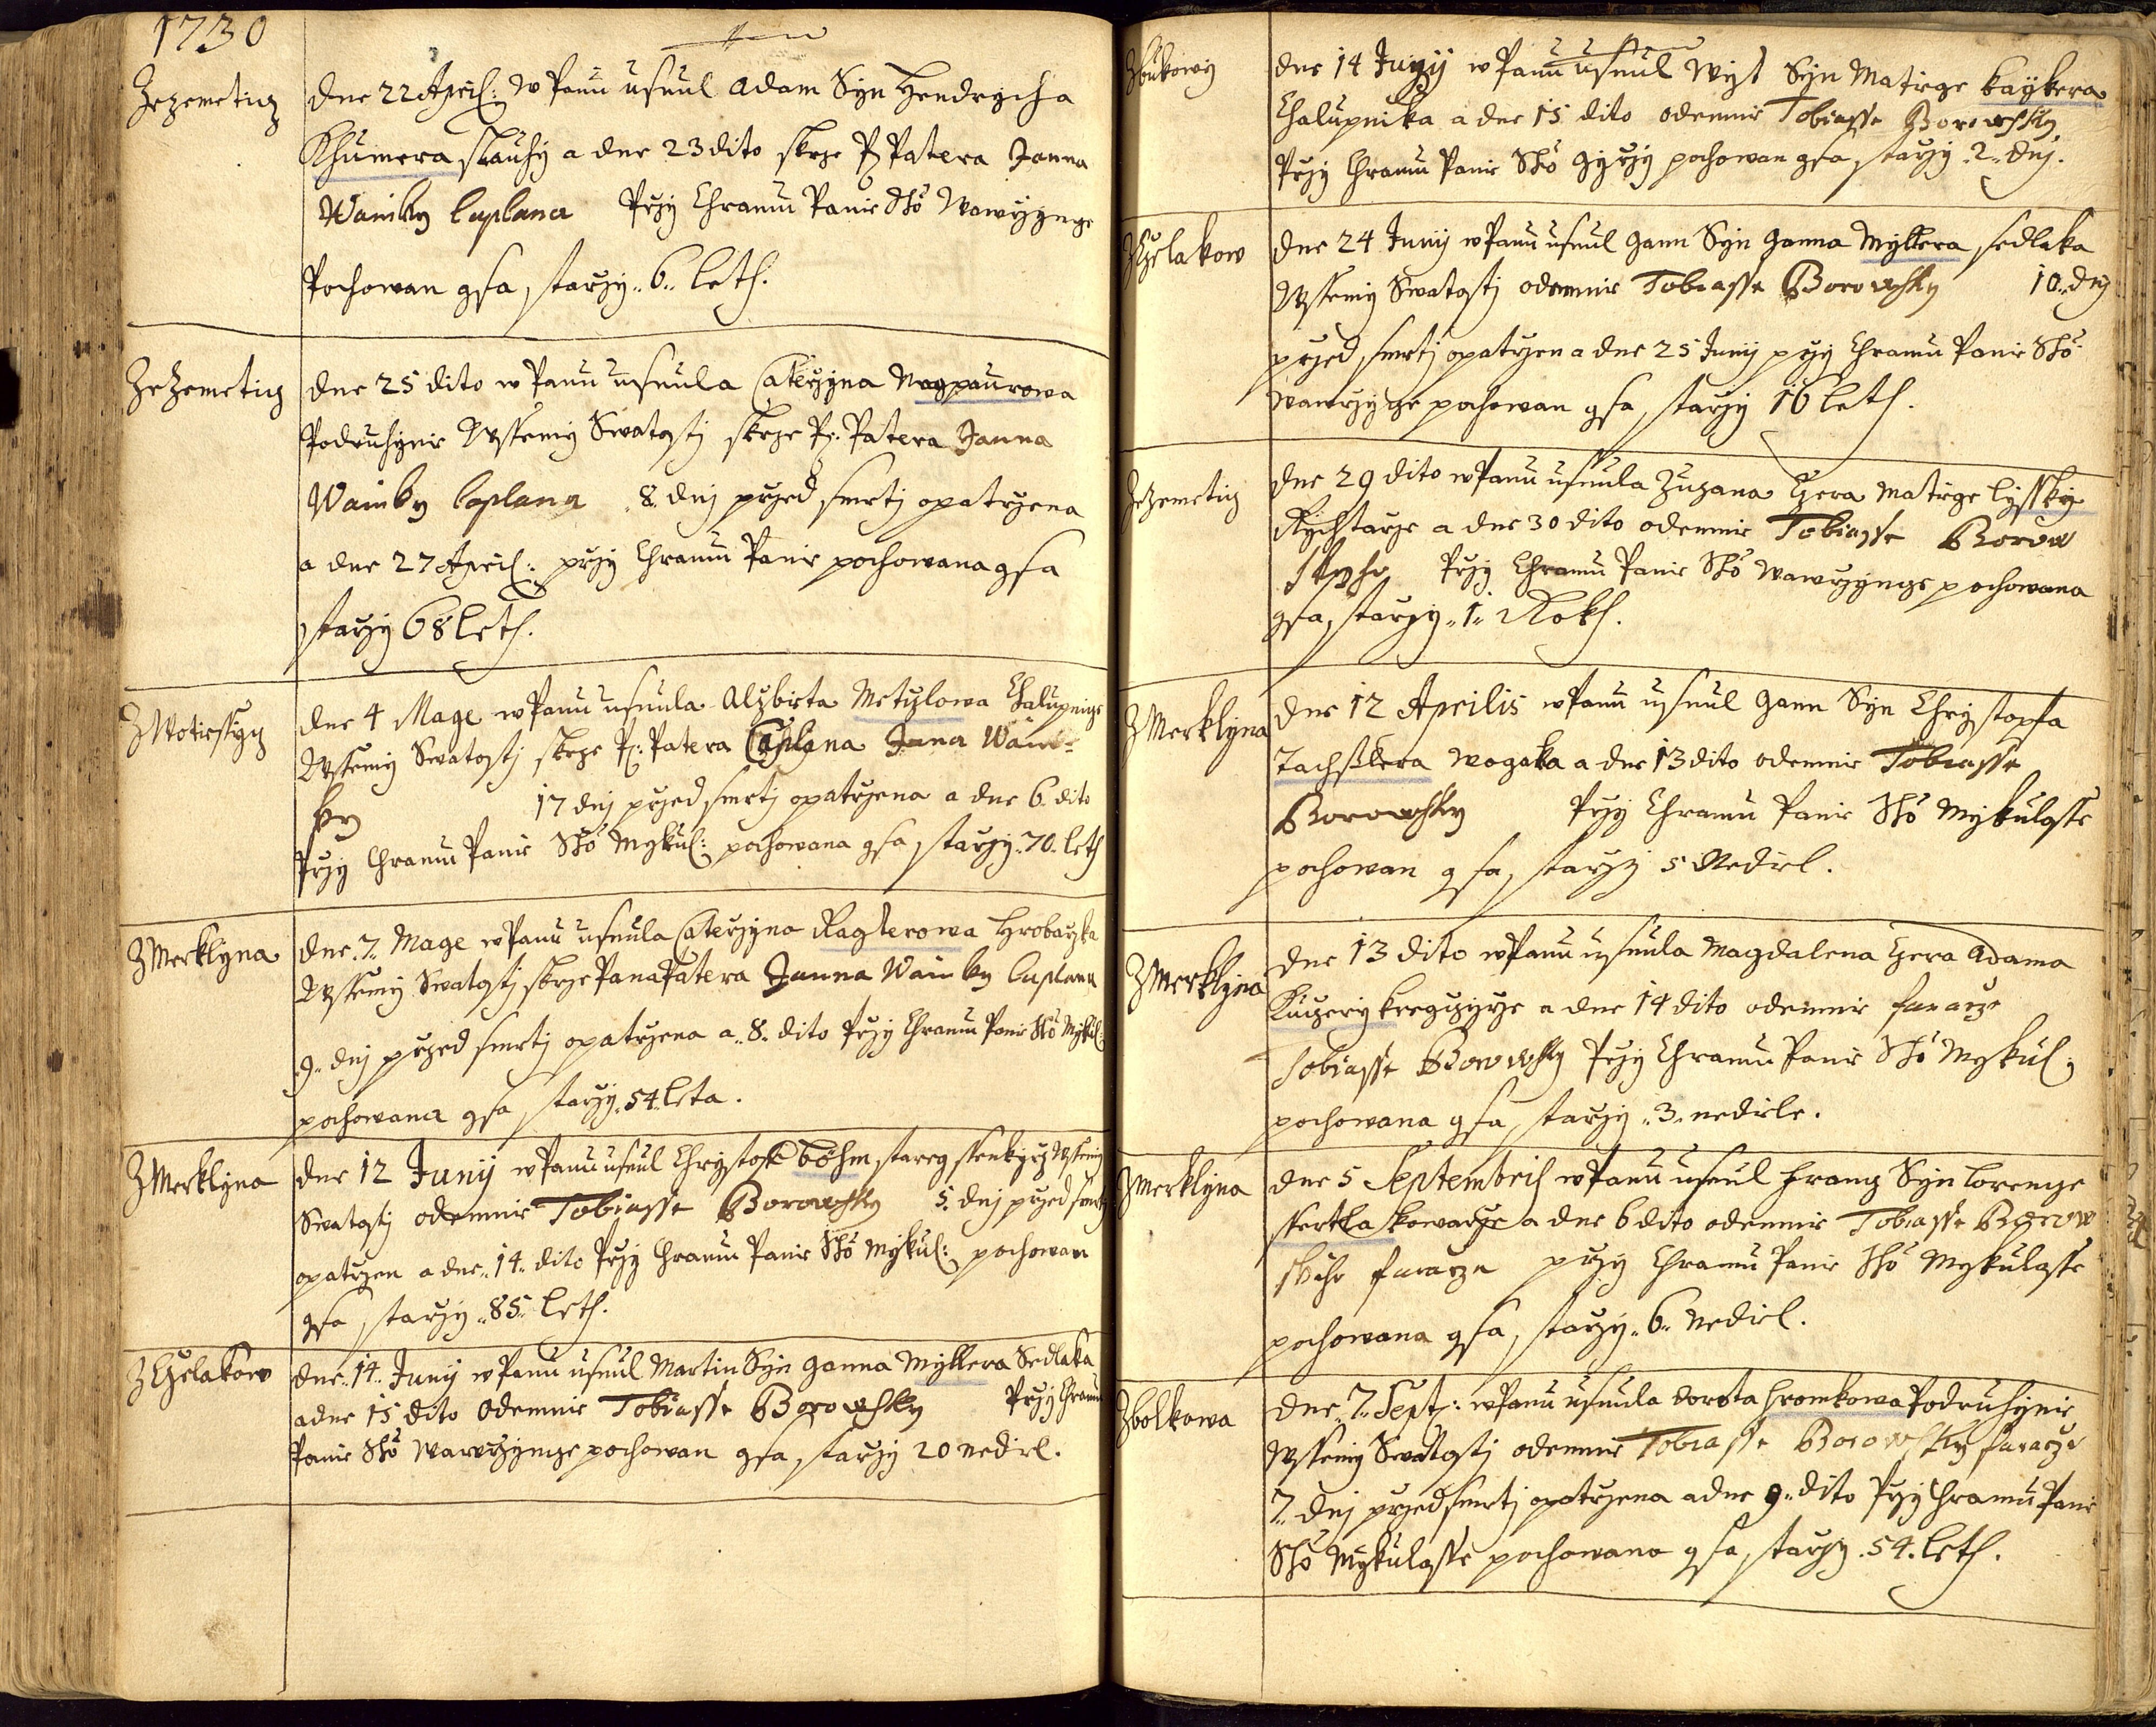 1730
Zezemeticz
dne 22 April: w Panu usnul Adam Syn Hendrycha
Khumera slauhy a dne 23 dito skrze P: Patera Janna
Wainky Caplana Przy Chramu Panie Sho Wawrzynge
Pochowan gsa, starzy 6 leth.
Ze Zemeticz
dne 25 dito w Panu usnula Caterzyna Nagpaurowa
Podruhynie Wssemy Swatostj skrze P: Patera Janna
Wainky Caplana 8. dnj przed smrtj opatrzena
a dne 27 April: przy Chramu Panie pochowana gsa
starzy 68 leth.
Z Wotiessycz
dne 4 Mage w Panu usnula Alzbieta Metzlowa Chalupnice
Wssemy Swatostj skrze P: Patera Caplana Jana Wain-
ky 17 dnj przed smrtj opatrzena a dne 6. dito
Przy Chramu Panie Sho Mykul: pochowana gsa, starzy 70. leth
Z Merklyna
dne 7. Mage w Panu usnula Caterzyna Ragterowa Hrobarzka
Wssemy Swatostj skrze Pana Patera Janna Wainky Caplana
9. dnj przed smrtj opatrzena a 8. dito Przy Chramu Panie Sho Mykul:
pochowana gsa, starzy 54. leta.
Z Merklyna
dne 12 Junij w Panu usnul Chrystoff Böhm starey ssenkyrz Wssemy
Swatostj odemnie Tobiasse Borowsky 5. dnj przed smrtj
opatrzen a dne 14. dito Przy Chramu Panie Sho Mykul: pochowan
gsa, starzy 85. leth.
Z Czelakow
dne 14. Junij w Panu usnul Martin Syn Ganna Myllera Sedlaka
a dne 15 dito Odemnie Tobiasse Borowsky Przy Chramu
Panie Sho Wawrzynge pochowan gsa, starzy 20 nediel.
Z bukowy
dne 14 Junij w Panu usnul Wyt Syn Matiege Kaykera
Chalupnika a dne 15 dito odemnie Tobiasse Borowsky,
Przy Chramu Panie Sho Gyrzy pochowan gsa, starzy 2. dnj.
Z Czelakow
dne 24 Junij w Panu usnul Gann Syn Ganna Myllera sedlaka
Wssemy Swatostj odemnie Tobiasse Borowsky 10. dnj
przed smrtj opatrzen a dne 25 Junij przy Chramu Panie Sho
Wawrzynge pochowan gsa, starzy 16 leth.
Ze Zemeticz
dne 29 dito w Panu usnula Zuzana Czera Matiege Lyssky
Rychtarze a dne 30 dito odemnie Tobiasse Borow
skyho Przy Chramu Panie Sho Wawrzynge pochowana
gsa, starzy 1. Rokh.
Z Merklyna
dne 12 Aprilis w Panu usnul Gann Syn Chrystoffa
Tachslera Wogaka a dne 13 dito odemnie Tobiasse
Borowsky Przy Chramu Panie Sho Mykulasse
pochowan gsa, starzy 5 Nediel.
Z Merklyna
dne 13 dito w Panu usnula Magdalena Czera Adama
Kuczery kregczyrze a dne 14 dito odemnie faraze
Tobiasse Borowsky Przy Chramu Panie Sho Mykul:
pochowana gsa, starzy 3. nediele.
Z Merklyna
dne 5 Septembris w Panu usnul Franz Syn Lorenze
sskertla kowarze a dne 6 dito odemnie Tobiasse Borow
skeho faraze przy Chramu Panie Sho Mykulasse
pochowana gsa, starzy 6. Nediel.
Z bolkowa
dne 7. Sept: w Panu usnula Dorota Hromkowa Podruhynie
Wssemy Swatostj odemnie Tobiasse Borowsky faraze
7. dnj przed smrtj opatrzena a dne 9. dito Przy Chramu Panie
Sho Mykulasse pochowana gsa, starzy 54. leth.